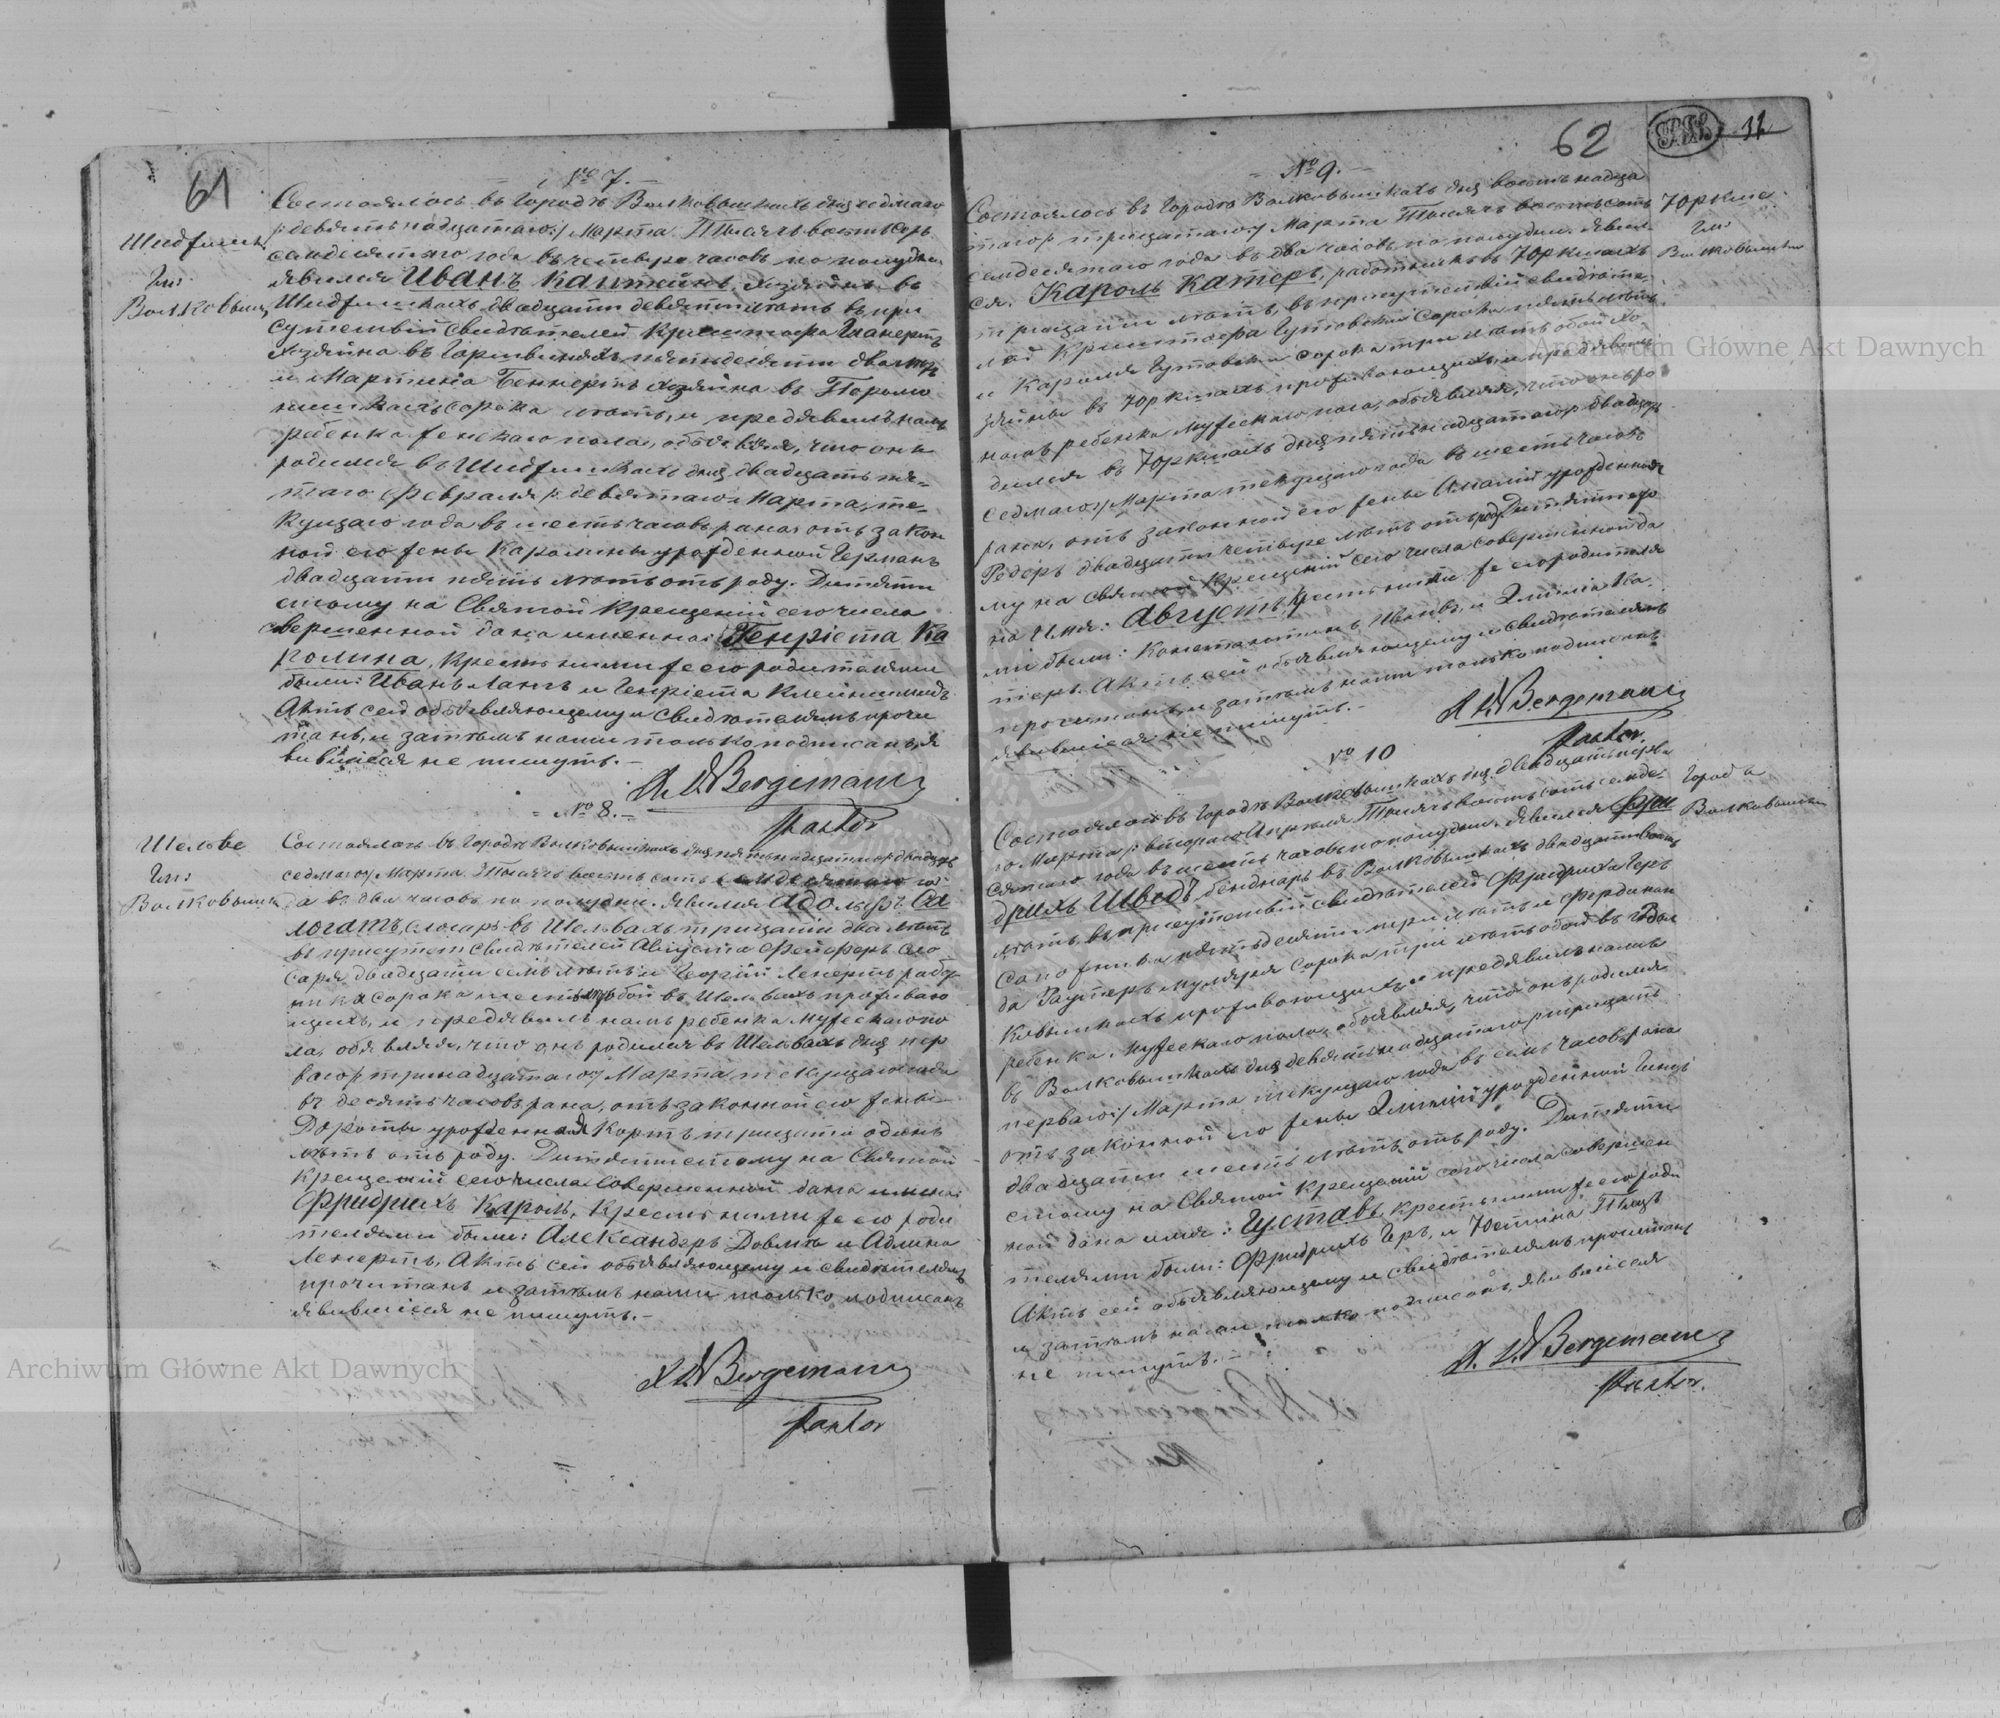 61
№ 7.
Шидфишк
Гми:
Волковышк
Состоялось въ Городѣ Волковышкахъ дня седмаго
/: девятьнадцатаго:/ Марта Тысяча восемьсотъ
семдесятаго года въ четверо часовъ по полудни
явился Иванъ Каптейнъ, хозяинъ въ
двадцати девяти лѣтъ въ при
сутствіи свидѣтелей Криштофа
хозяина въ пятьдесяти два лѣтъ
и Мартина Беннертъ хозяина въ
сорока лѣтъ, и предявилъ намъ
ребенка женскаго пола, объявляя, что онъ
родился въ дня двадцать пя-
таго Февраля /: девятаго Марта, те-
кущаго года въ шесть часовъ рана, отъ закон
ной его жены Каролины урожденной Германъ
двадцати пять лѣтъ отъ роду. Дитяти
этому на Святой Крещеніи сего числа
совершенной дана имена: Генріета Ка
ролина, Крестными же его родителями
были: Иванъ Лангъ и Генріета Клейншмидъ
Актъ сей объявляющему и Свидѣтелямъ прочи
танъ, и затѣмъ нами только подписанъ, я
вившіеся не пишутъ.-
A W Bergemann
Pastor
№ 8.
Шельве
Гми:
Волковышк
Состоялось въ Городѣ Волковышкахъ дня пятьнадцатаго /: двадцать
седмаго:/ Марта Тысяча восемьсотъ семдесятаго го-
да въ два часовъ по полудни. Явился Адольфъ Са
логатъ, слосарь въ Шельвахъ тридцати два лѣтъ
въ присутст свидѣтелей Августа Фейферъ Сло
саря двадцати семь лѣтъ и Георгій Ленертъ рабо
ника сорока шесть лѣтъ обой въ Шельвахъ проживаю
щихъ, и предявилъ намъ ребенка Мужескаго по
ла, объявляя, что онъ родился въ Шельвахъ дня пер
ваго /: тринадцатаго:/ Марта текущаго года
въ десять часовъ рана, отъ законной его жены
Дороты урожденная Кортъ тридцати одинъ
лѣтъ отъ роду. Дитяти этому на Святой
Крещеніи сего числа совершенной дана имена:
Фридрихъ Кароль, Крестьными же его роди
телями были: Александеръ Довлитъ и Адлина
Ленертъ, Актъ сей объявляющему и свидѣтелямъ
прочитанъ и затѣмъ нами только подписанъ
явившіеся не пишутъ.-
A W Bergemann
Pastor
62
11
№ 9.
Юркше
Гми:
Волковышки
Состоялось въ Городѣ Волковышкахъ дня восемьнадца
таго /: тридцатаго:/ Марта Тысяча восемьсотъ
семдесятаго года въ два часовъ по полудни. Явил
ся. Кароль Катеръ, работникъ въ Юркшахъ
тридцати лѣтъ, въ присутствіи свидѣте-
лей Криштофа Гутовски Сорока пять лѣтъ
и Кароля Гутовски сорока три лѣтъ обой хо-
зяины въ Юркшахъ проживающихъ, и предявилъ
намъ ребенка мужескаго пола, объявляя, что онъ ро
дился въ Юркшахъ дня пятьнадцатаго /: двадцать
седмаго:/ Марта текущаго года въ шесть часовъ
рана, отъ законной его жены Амаліи урожденная
Редеръ двадцати четвере лѣтъ отъ роду. Дитяти это
му на святой Крещеніи сего числа совершенной да
на имя: Августъ, Крестьными же его родителя
ми были: Константинъ Ивановъ, и Эмилія Ка
теръ. Актъ сей объявляющему и свидѣтелямъ
прочитанъ, и затѣмъ нами только подписанъ,
явившіеся не пишутъ.-
A W Bergemann
Pastor.
№ 10
Города
Волковышки
Состоялось въ Городѣ Волковышкахъ дня двадцать перва
го Марта /: втораго Апреля Тысяча восемь сотъ семде-
сятаго года въ шесть часовъ по полудни. Явился Фри
дрихъ Шведъ бенднаръ въ Волковышкахъ двадцати восемь
лѣтъ, въ присутствіи свидѣтелей Фридриха Геръ
сапожника пятьдесяти три лѣтъ и Фердинан
да Раутеръ муляря сорока три лѣтъ обой въ Вол
ковышкахъ проживающихъ, и предявилъ намъ
ребенка. Мужескаго пола, объявляя, что онъ родился
въ Волковышкахъ дня девятьнадцатаго /: тридцать
перваго:/ Марта текущаго года въ семь часовъ рана
отъ законной его жены Эмиліи урожденной Гинцъ
двадцати шесть лѣтъ отъ роду. Дитяти
этому на Святой Крещеніи сего числа совершен
ной дана имя: Густавъ, крестьными же его роди
телями были: Фридрихъ Геръ, и Юстина
Актъ сей объявляющему и Свидѣтелямъ прочитанъ
и затѣмъ нами только подписанъ, явившіеся
не пишутъ.-
A. W Bergemann
Pastor.
Archiwum Główne Akt Dawnych
Archiwum Główne Akt Dawnych